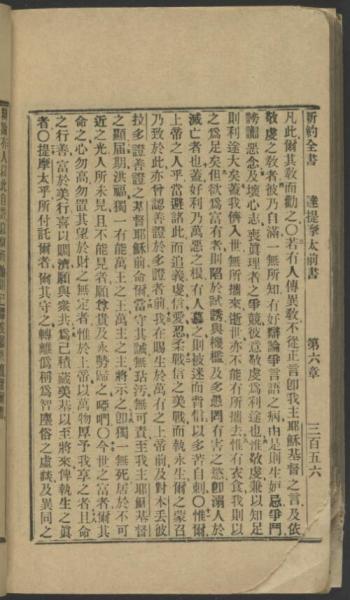 新約全書 達提摩太前書 第六章 三百五六
凡此爾其敎而勸之〇若有人傳異敎不從正言卽我主耶穌基督之言及依
敬虔之敎者彼乃自滿一無所知有好辯論爭言語之病由是則生妒忌爭鬥
謗讟惡念及壞心志喪眞理者之爭競彼意敬虔爲利途也惟敬虔兼以知足
則利途大矣蓋我儕入世無所攜來逝世亦不能有所攜去惟有衣食我則以
之爲足矣但欲爲富有者則陷於試誘與機檻及多愚罔有害之慾卽溺人於
滅亡者也蓋好利乃萬惡之根有人慕之則被迷而背信以多苦自刺〇惟爾
上帝之人乎當避諸此而追義虔信愛忍柔戰信之美戰而執永生爾之蒙召
乃致於此亦曾認善證於多證者前我在賜生於萬有之上帝前及對本丟彼
拉多證善證之基督耶穌前命爾當守其誡無玷污無可責至我主耶穌基督
之顯屆期洪福獨一有能萬王之王萬主之主將示之卽獨一無死居於不可
近之光人所未見且不能見者願尊貴及永勢歸之啞們〇今世之富者爾其
命之心勿高勿置其望於財之無定者惟於上帝以萬物厚予我享之者且命
之行善富於美行喜以賙濟願與衆共爲己積蓄美基以至將來俾執生之眞
者〇提摩太乎所付託爾者爾其守之轉離僞稱爲智塵俗之虛談及異同之